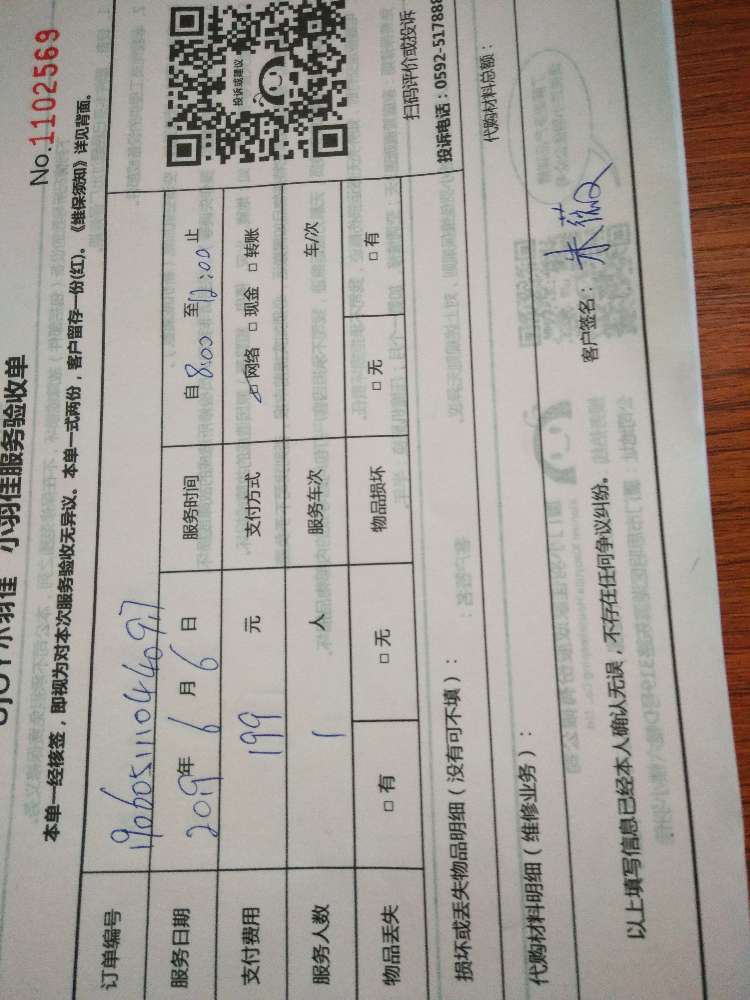 小羽佳服务验收单
No.1102569
本单一经核签，即视为对本次服务验收无异议。本单一式两份，客户留存一份(红)。《维保须知》详见背面。
订单编号 190605111044097
服务日期 2019年 6 月 6 日 服务时间 自 8:00 至 12:00 止
支付费用 199 元 支付方式 ☑网络 □现金 □转账
服务人数 1 人 服务车次 车/次
物品丢失 □有 □无 物品损坏 □无 □有
投诉或建议
扫码评价或投诉
投诉电话：0592-517888
损坏或丢失物品明细（没有可不填）：
代购材料明细（维修业务）： 代购材料总额：
以上填写信息已经本人确认无误，不存在任何争议纠纷。
客户签名：